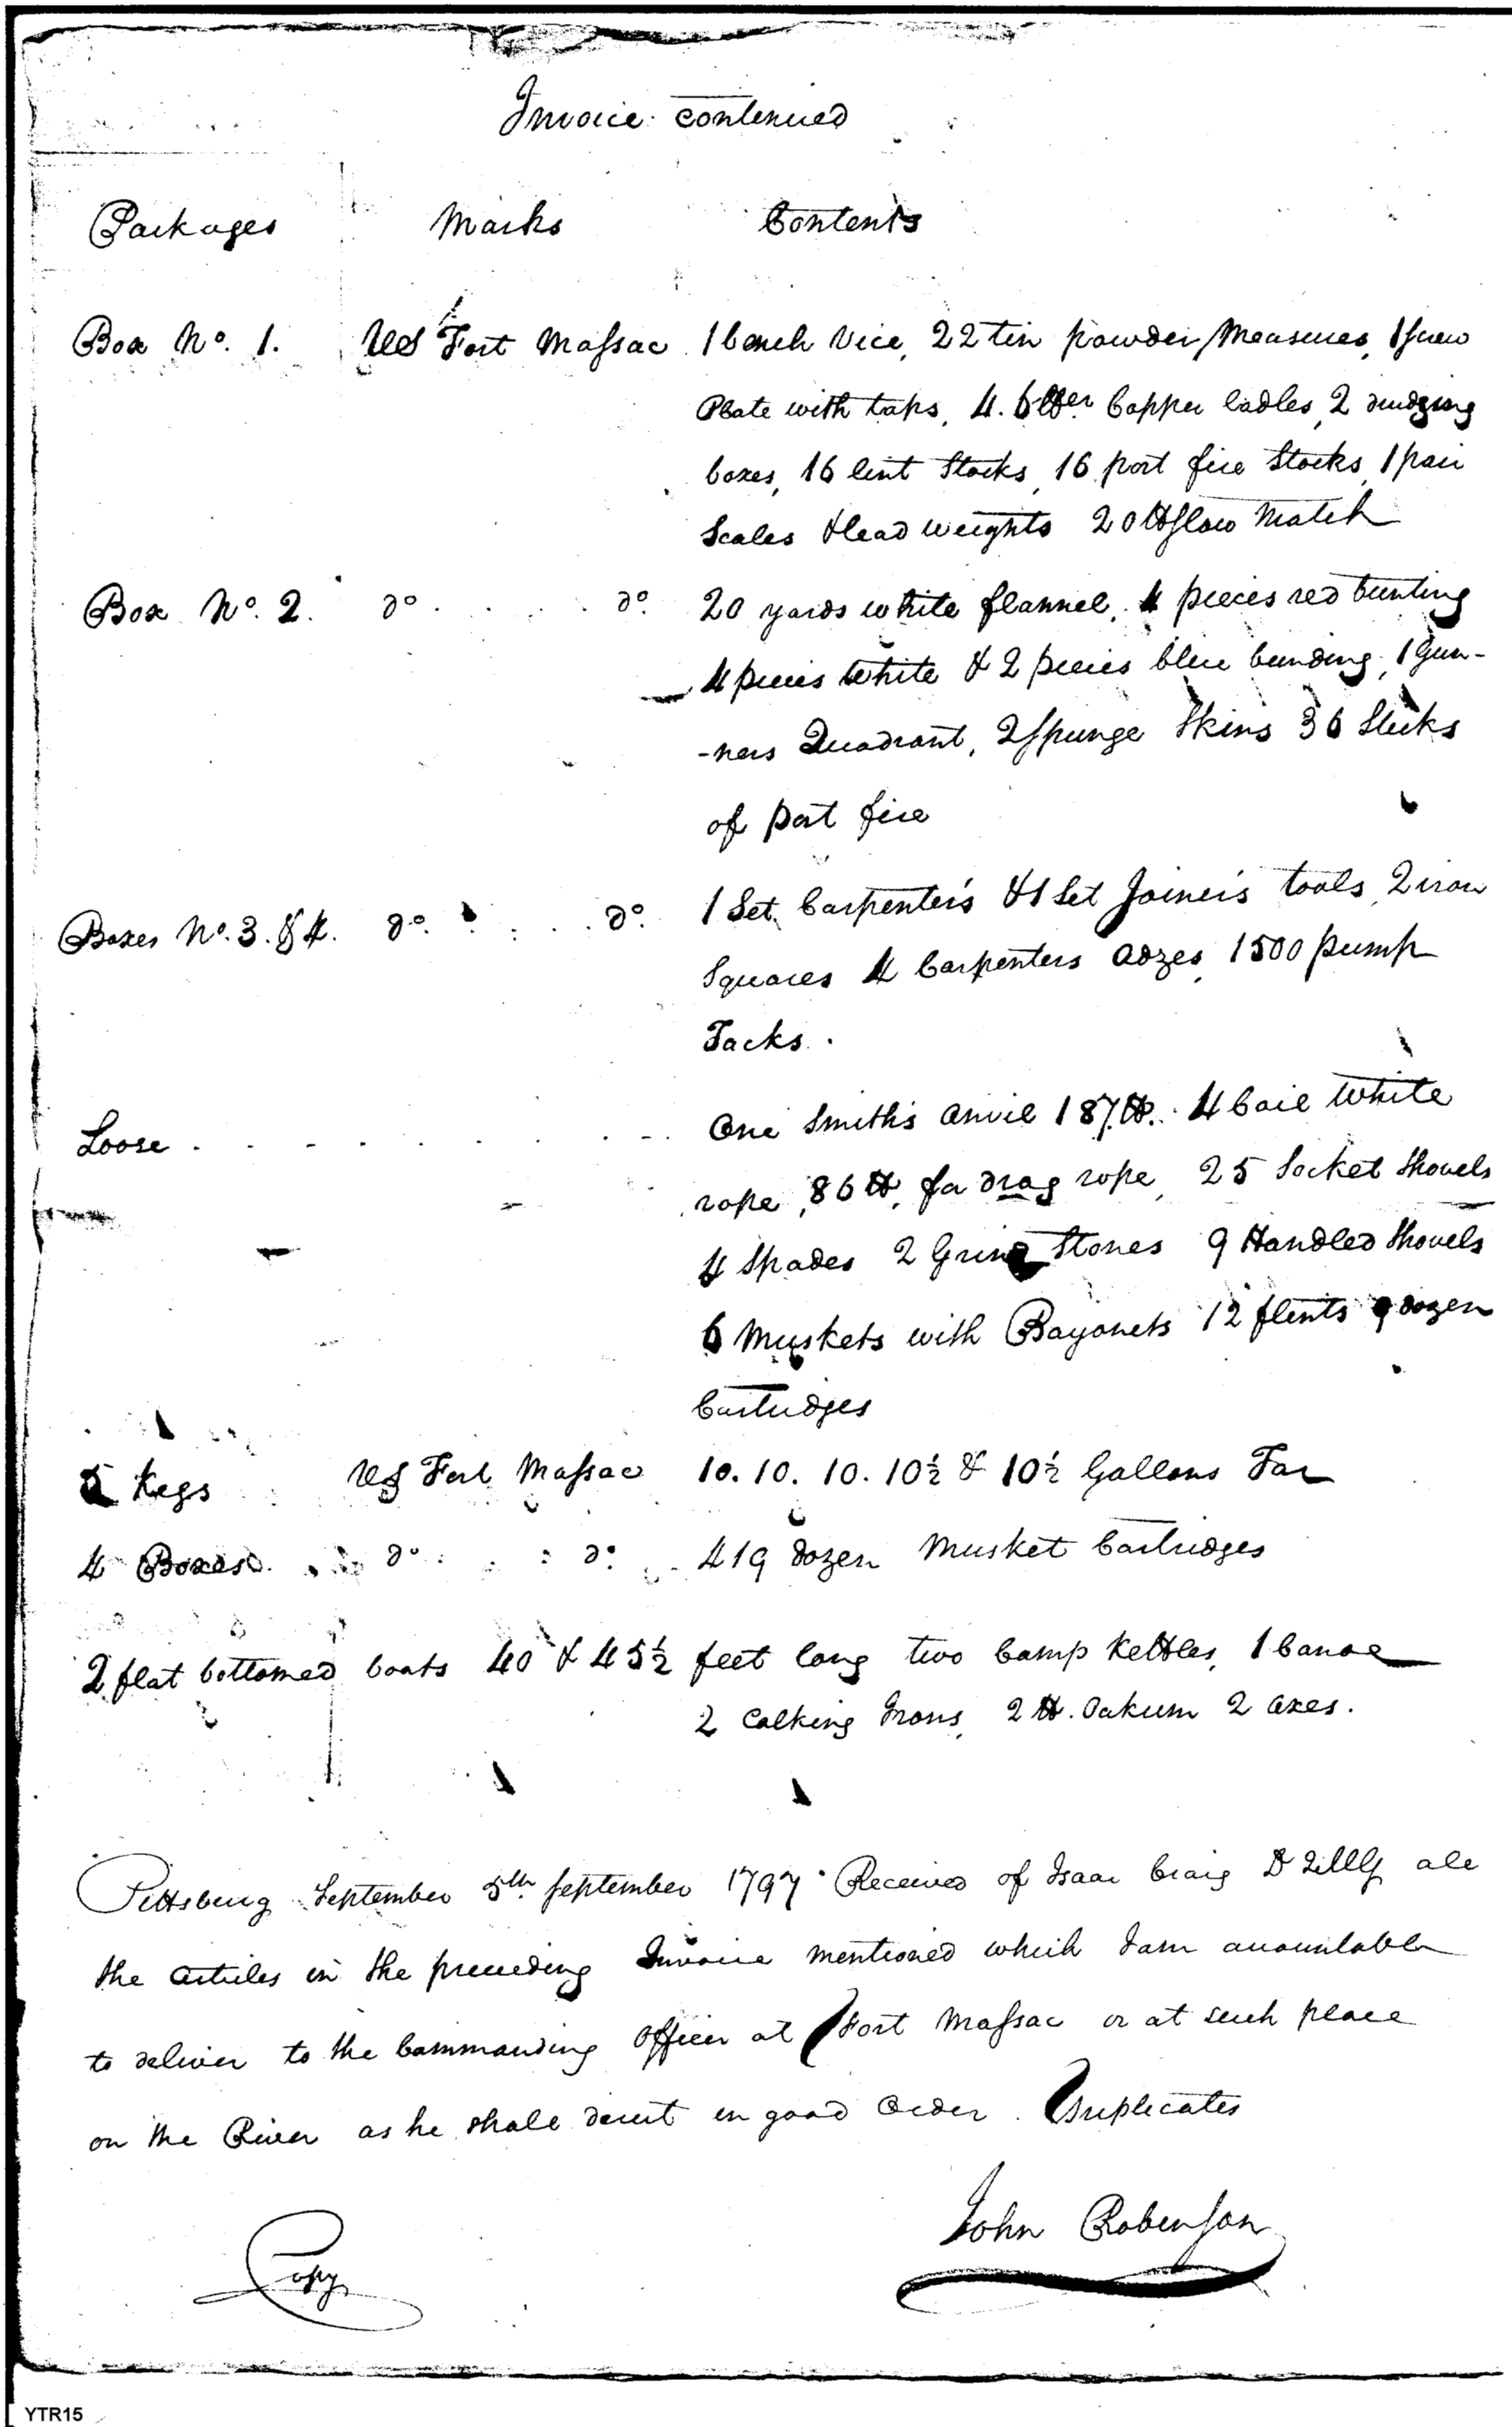 Invoice continued
Packages Marks Contents
Box No. 1. US Fort Massac 1 bench Vice, 22 tin powder Measures, 1 screw
Plate with taps, 4. 6 lber Copper ladles, 2 dudging
boxes, 16 lint Stocks, 16 port fire Stocks, 1 pair
Scales & lead weights 20 lb slow Match
Box No. 2. do . . . . do. 20 yards white flannel, 4 pieces red bunting
4 pieces White & 2 pieces blue bunding, 1 Gun-
-ners Quadrant, 2 spunge Skins 36 Sticks
of port fire
Boxes No. 3. & 4. do. . . . . do. 1 Set Carpenter's & 1 Set Joiner's tools, 2 iron
Squares 4 Carpenters adzes, 1500 pump
Tacks.
Loose . . . . . . . . . . One Smith's anvil 187 lb. 4 Coil White
rope, 86 lb, for drag rope, 25 Socket Shovels
4 Spades 2 Grind Stones 9 Handled Shovels
6 Muskets with Bayonets 12 flints 9 dozen
Cartridges
5 Kegs US Fort Massac 10. 10. 10. 10½ & 10½ Gallons Tar
4 Boxes. do . . : do. 419 dozen Musket Cartridges
2 flat bottomed boats 40 & 45½ feet long two Camp Kettles, 1 Canoe
2 Calking Irons, 2 lb. Oakum 2 axes.
Pittsburg September 5th September 1797 Received of Isaac Craig D QMG all
the articles in the preceding Invoice mentioned which I am accountable
to deliver to the Commanding Officer at Fort Massac or at such place
on the River as he shall direct in good Order. Duplicates
John Robinson
Copy
YTR15